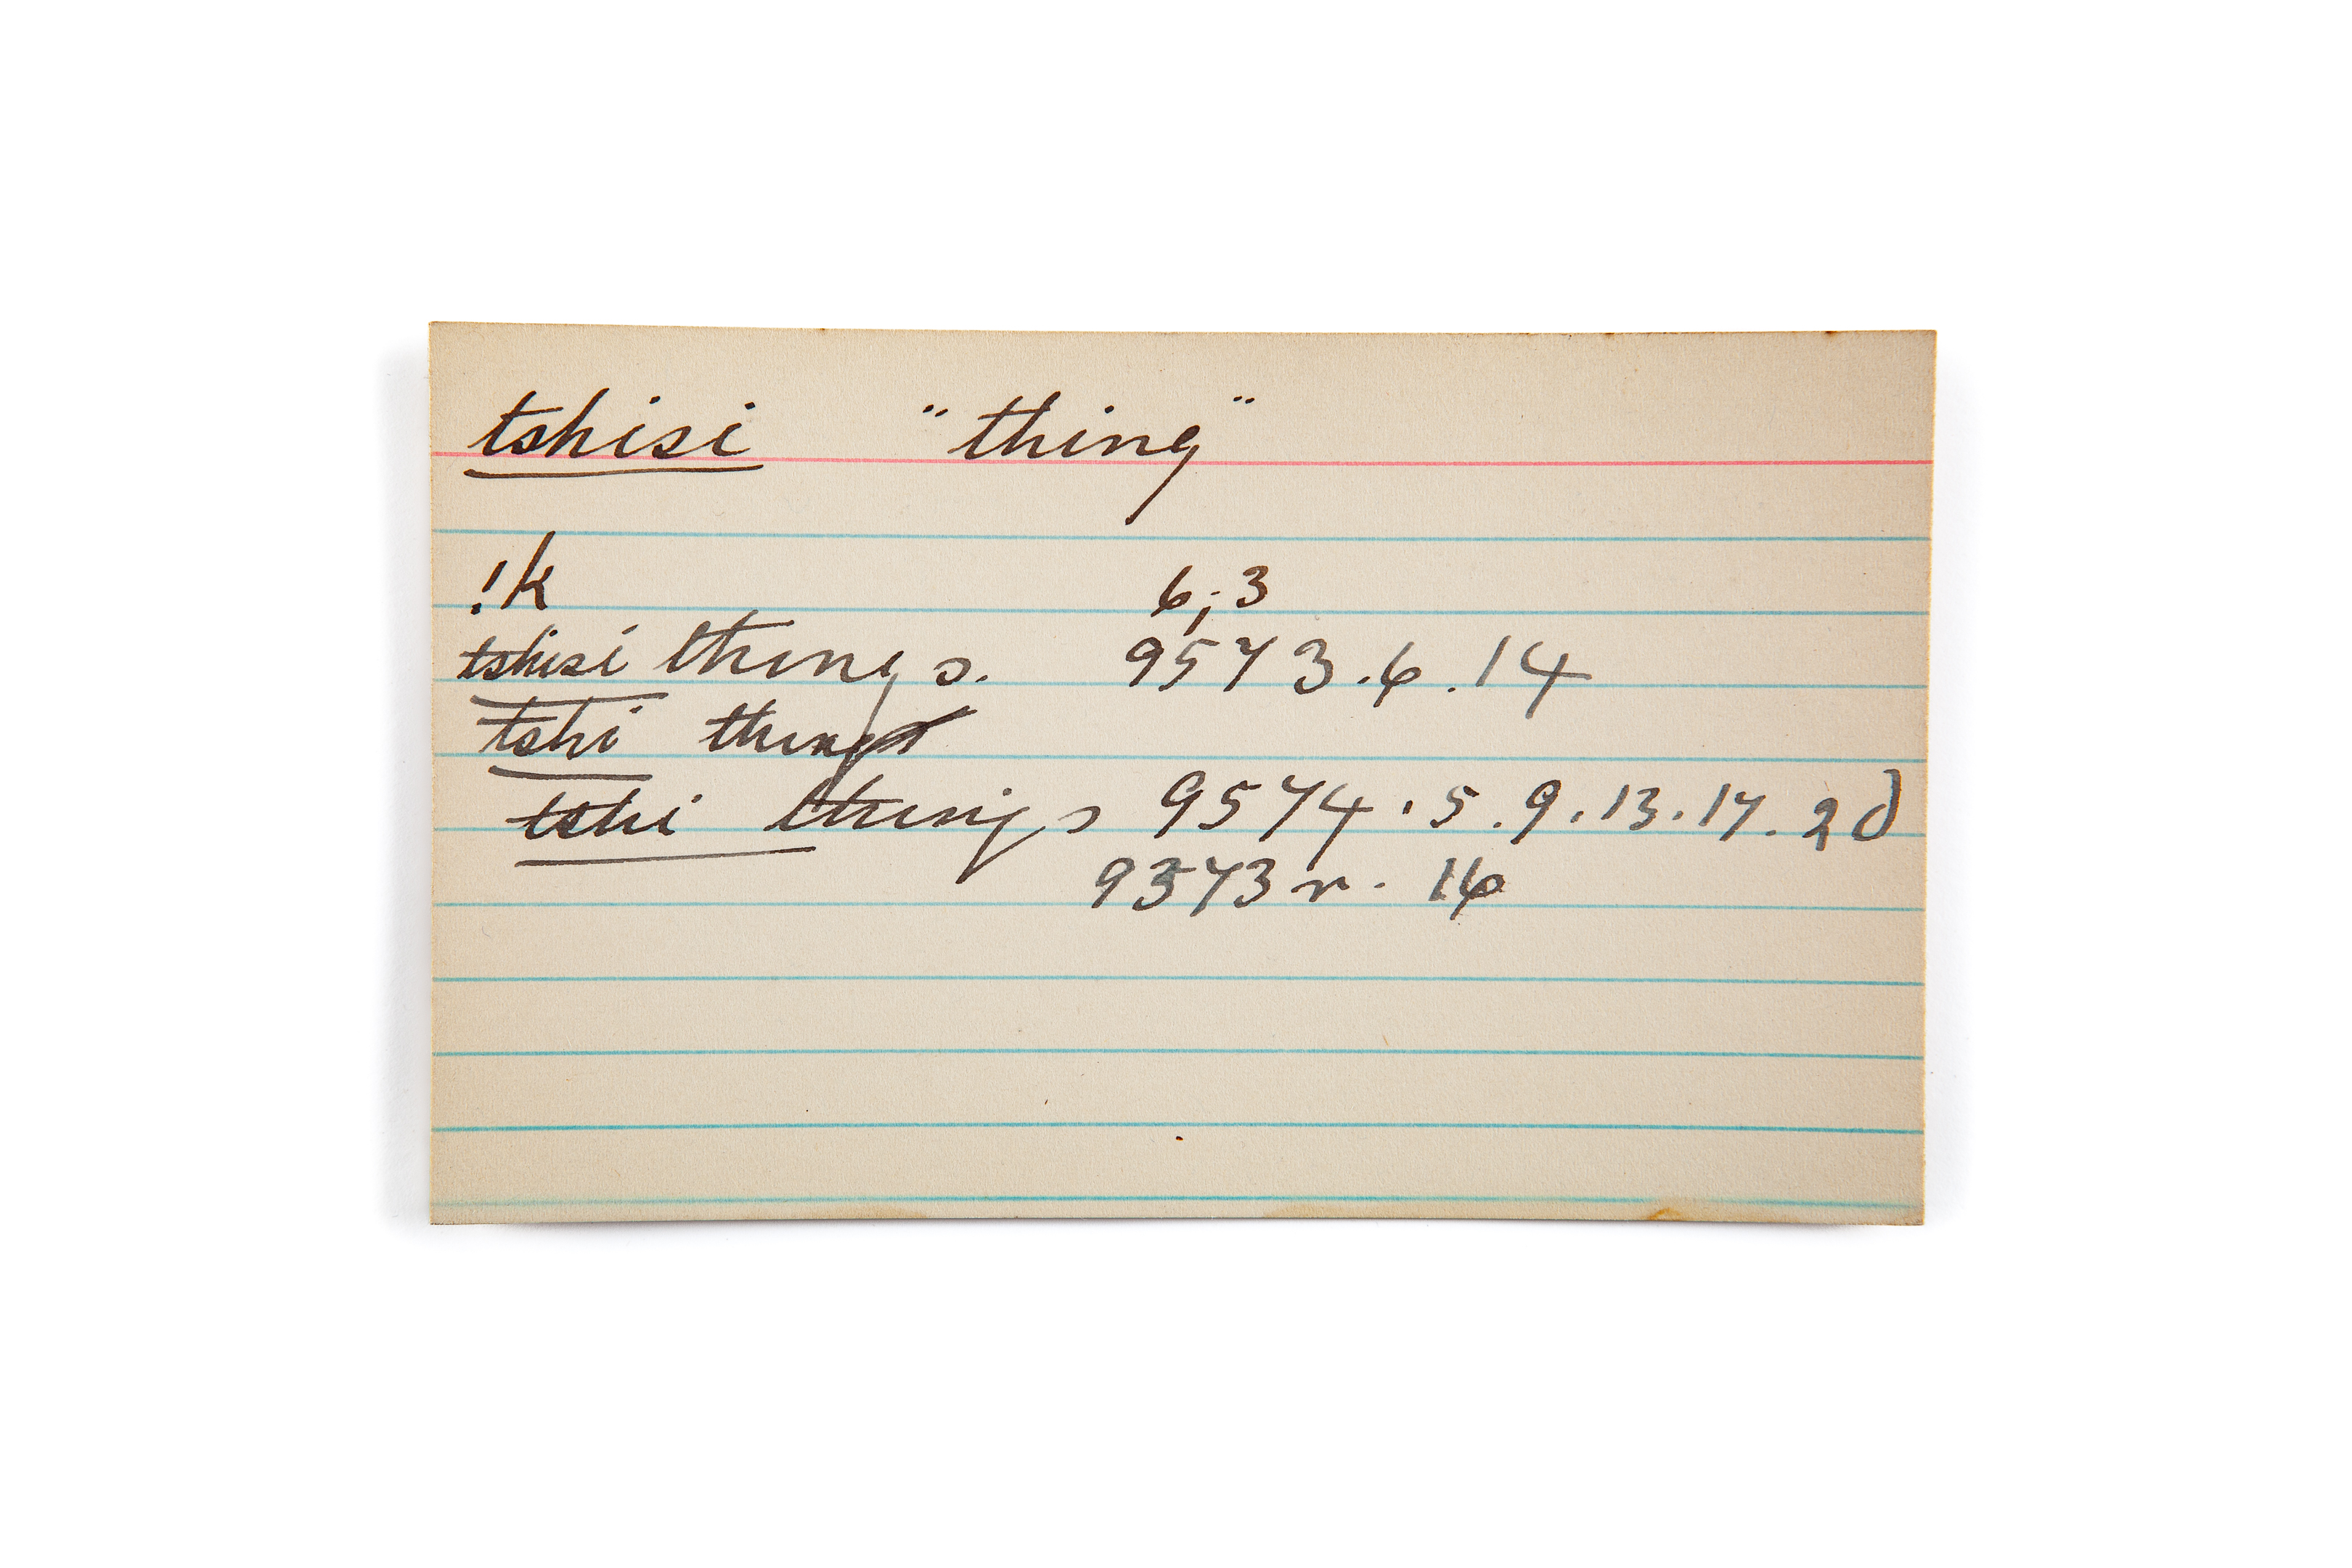 tshisi "thing"
!k 6;3
tshisi things. 9573.6.14
tshi things
tshi things 9574.5.9.13.17.20
9573 r. 16